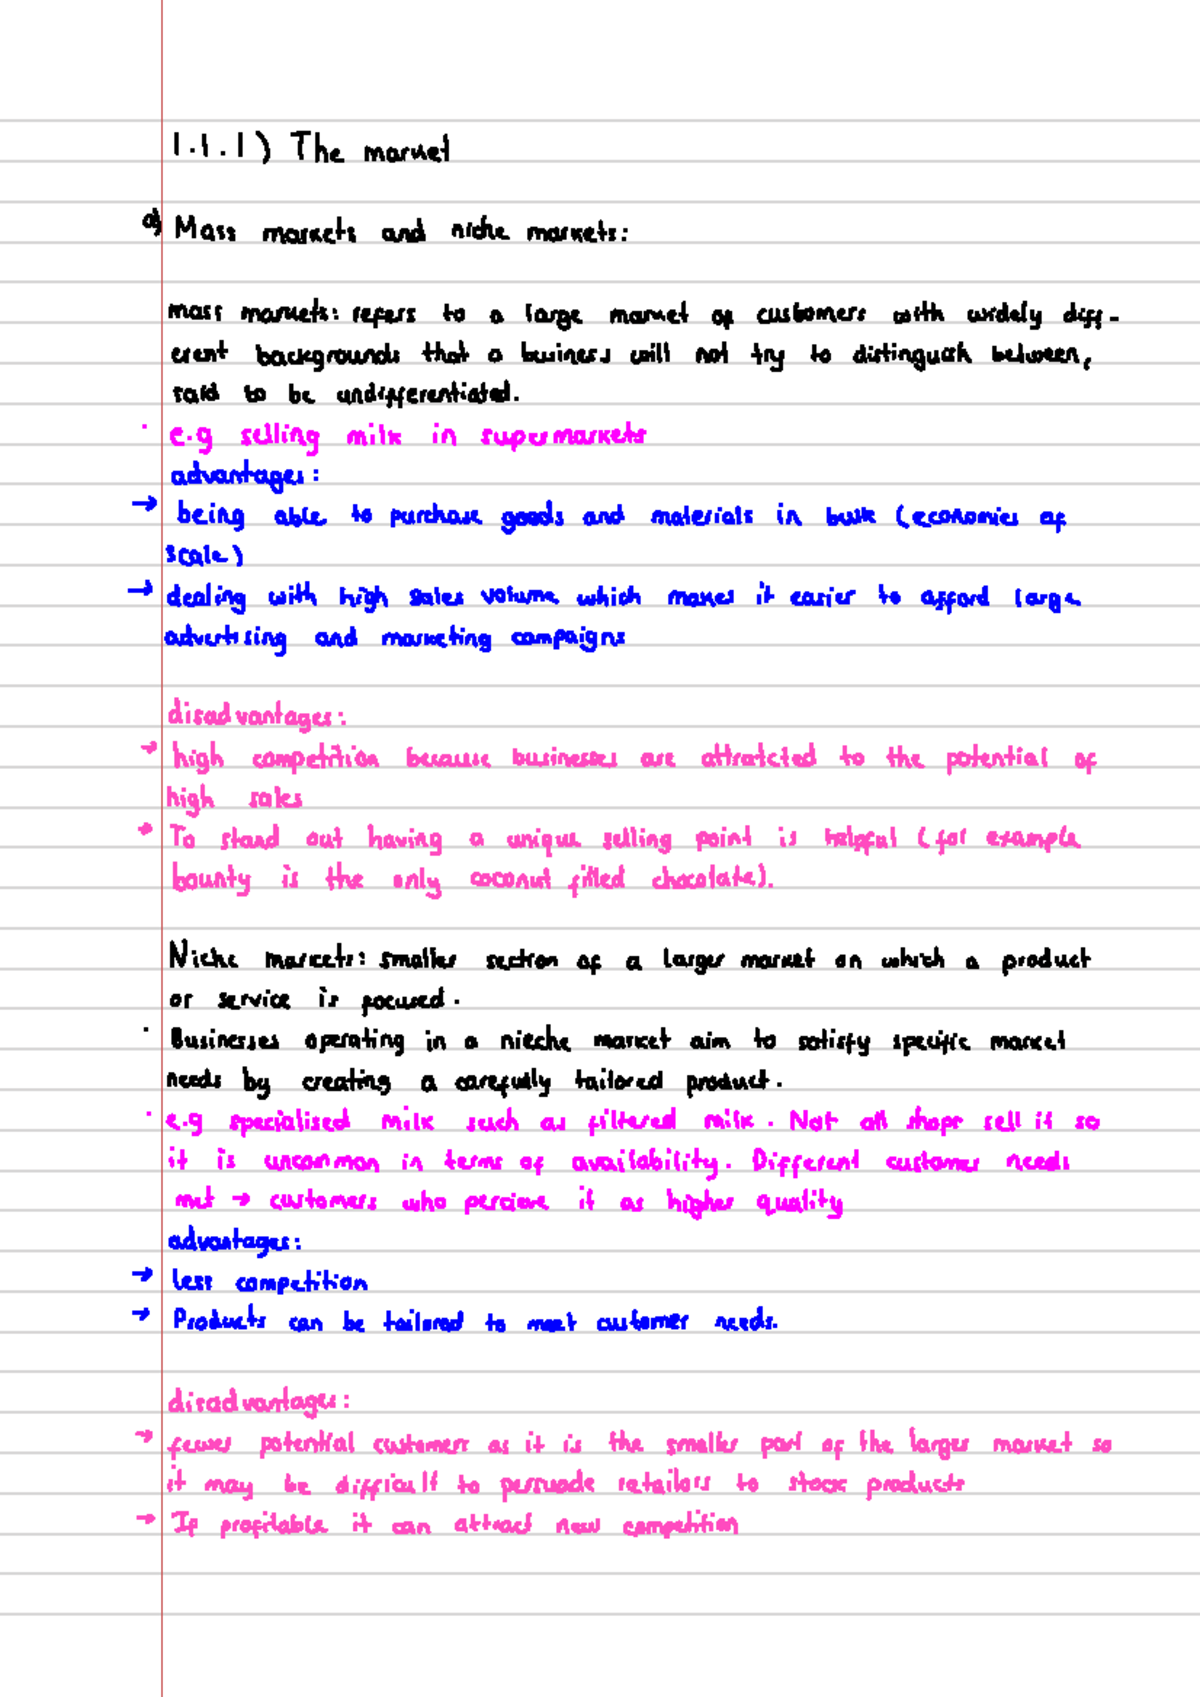 1.1.1) The market
a) Mass markets and niche markets:
mass markets: refers to a large market of customers with widely diff-
erent backgrounds that a business will not try to distinguish between,
said to be undifferentiated.
· e.g selling milk in supermarkets
advantages:
→ being able to purchase goods and materials in bulk (economies of
scale)
→ dealing with high sales volume which makes it easier to afford large
advertising and marketing campaigns
disadvantages:
→ high competition because businesses are attratcted to the potential of
high sales
→ To stand out having a unique selling point is helpful (for example
bounty is the only coconut filled chocolate).
Niche markets: smaller section of a larger market on which a product
or service is focused.
· Businesses operating in a nieche market aim to satisfy specific market
needs by creating a carefully tailored product.
· e.g specialised milk such as filtered milk. Not all shops sell it so
it is uncommon in terms of availability. Different customer needs
met → customers who percieve it as higher quality
advantages:
→ less competition
→ Products can be tailored to meet customer needs.
disadvantages:
→ fewer potential customers as it is the smaller part of the larger market so
it may be difficult to persuade retailers to stock products
→ If profitable it can attract new competition